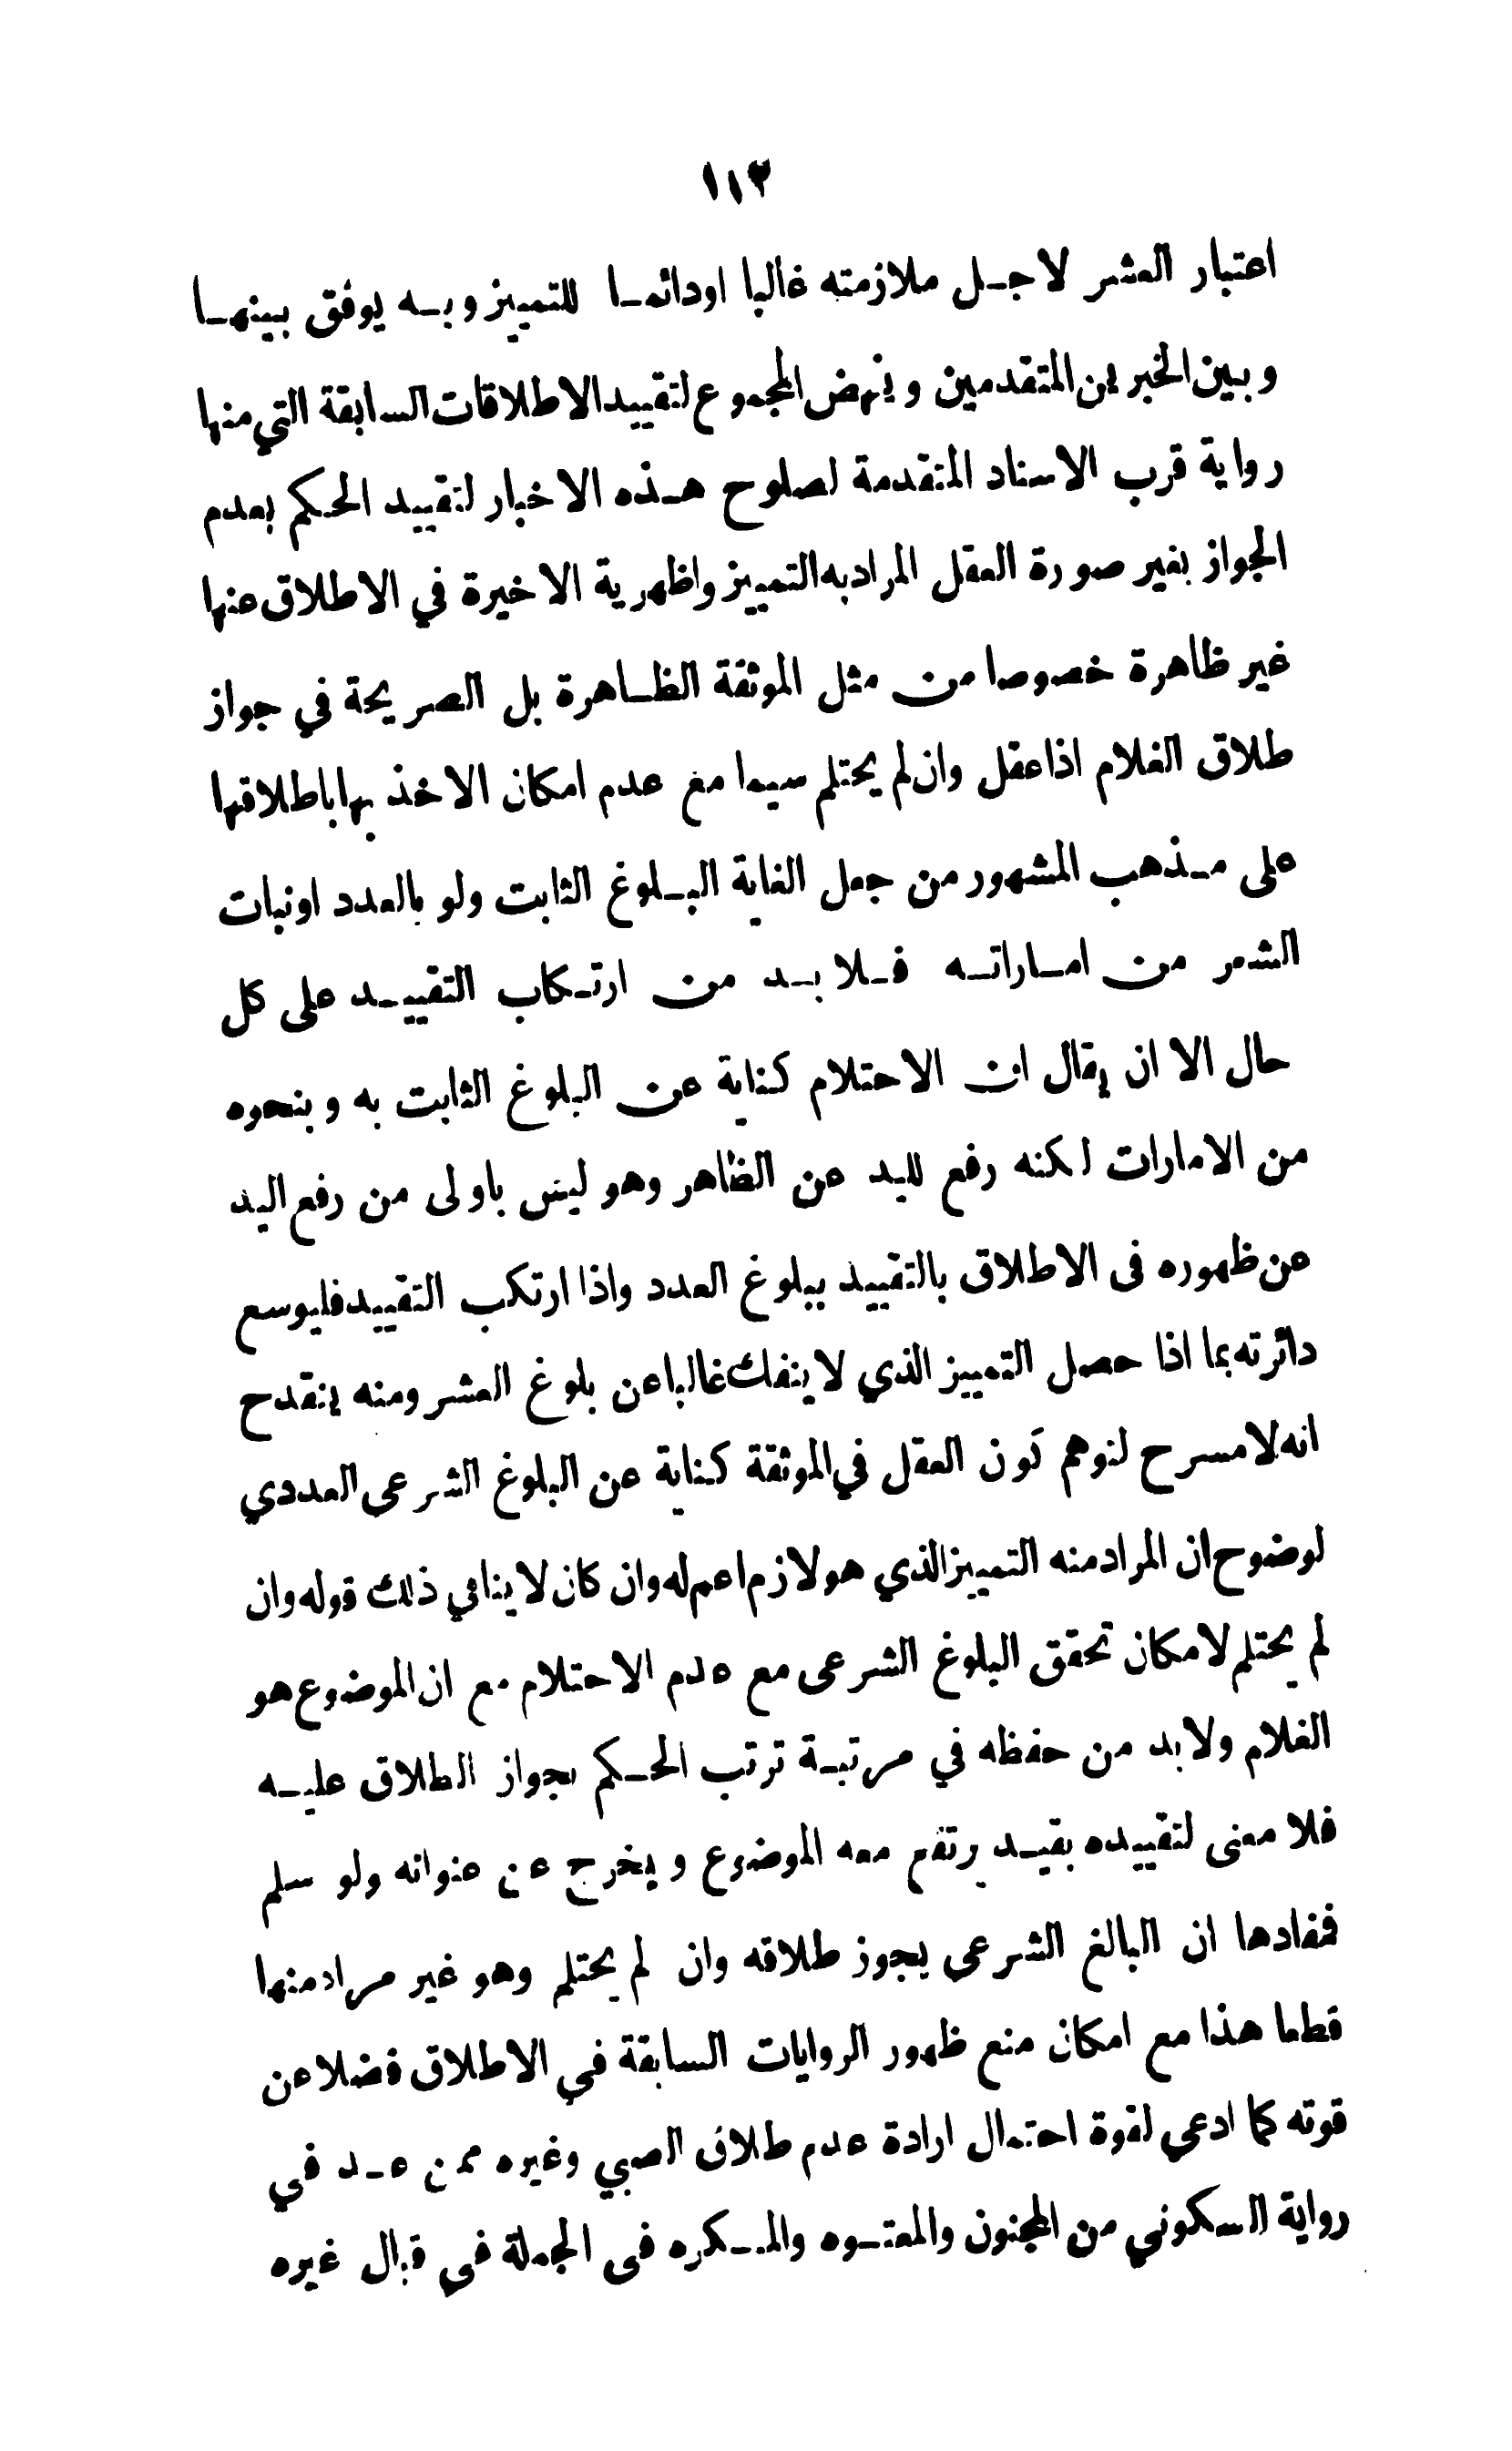 ١١٢
اعتبار العشر لاجل ملازمته غالبا اودائما للتمييز وبه يوفق بينها
وبين الخبرين المتقدمين وينهض المجموع لتقييد الاطلاقات السابقة التي منها
رواية قرب الاسناد المتقدمة لصلوح هذه الاخبار لتقييد الحكم بعدم
الجواز بغير صورة العقل المراد به التمييز واظهرية الاخيرة في الاطلاق عنها
غير ظاهرة خصوصا من مثل الموثقة الظاهرة بل الصريحة في جواز
طلاق الغلام اذا عقل وان لم يحتلم سيما مع عدم امكان الاخذ بها باطلاقها
على مذهب المشهور من جعل الغاية البلوغ الثابت ولو بالعدد اونبات
الشعر من اماراته فلا بد من ارتكاب التقييد على كل
حال الا ان يقال ان الاحتلام كناية عن البلوغ الثابت به وبنحوه
من الامارات لكنه رفع لليد عن الظاهر وهو ليس باولى من رفع اليد
عن ظهوره فى الاطلاق بالتقييد ببلوغ العدد واذا ارتكب التقييد فليوسع
دائرته بما اذا حصل التمييز الذي لا ينفك غالبا عن بلوغ العشر ومنه ينقدح
انه لا مسرح لتوهم كون العقل في الموثقة كناية عن البلوغ الشرعى العددي
لوضوح ان المراد منه التمييز الذي هو لازم اعم له وان كان لا ينافي ذلك قوله وان
لم يحتلم لامكان تحقق البلوغ الشرعى مع عدم الاحتلام مع ان الموضوع هو
الغلام ولا بد من حفظه في مرتبة ترتب الحكم بجواز الطلاق عليه
فلا معنى لتقييده بقيد يرتفع معه الموضوع ويخرج عن عنوانه ولو سلم
فمفادها ان البالغ الشرعى يجوز طلاقه وان لم يحتلم وهو غير مراد منها
قطعا هذا مع امكان منع ظهور الروايات السابقة في الاطلاق فضلا عن
قوته كما ادعي لقوة احتمال ارادة عدم طلاق الصبي وغيره ممن عد في
رواية السكوني من المجنون والمعتوه والمكره فى الجملة في قبال غيره